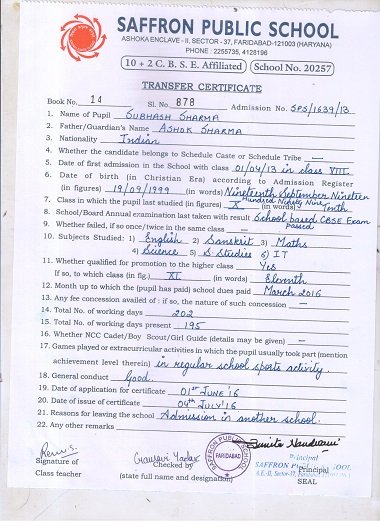 SAFFRON PUBLIC SCHOOL
ASHOKA ENCLAVE - II, SECTOR - 37, FARIDABAD-121003 (HARYANA)
PHONE : 2255735, 4128196
10 + 2 C. B. S. E. Affiliated School No. 20257
TRANSFER CERTIFICATE
Book No. 14 Sl. No. 878 Admission No. SPS/1639/13
1. Name of Pupil SUBHASH SHARMA
2. Father/Guardian's Name ASHOK SHARMA
3. Nationality Indian
4. Whether the candidate belongs to Schedule Caste or Schedule Tribe —
5. Date of first admission in the School with class 01/04/13 in class VIII
6. Date of birth (in Christian Era) according to Admission Register
(in figures) 19/09/1999 (in words) Nineteenth September Nineteen
Hundred Ninety Nine
7. Class in which the pupil last studied (in figures) X (in words) Tenth
8. School/Board Annual examination last taken with result School based CBSE Exam
passed
9. Whether failed, if so once/twice in the same class —
10. Subjects Studied: 1) English 2) Sanskrit 3) Maths
4) Science 5) S. Studies 6) IT
11. Whether qualified for promotion to the higher class Yes
If so, to which class (in fig.) XI (in words) Eleventh
12. Month up to which the (pupil has paid) school dues paid March 2016
13. Any fee concession availed of : if so, the nature of such concession —
14. Total No. of working days 202
15. Total No. of working days present 195
16. Whether NCC Cadet/Boy Scout/Girl Guide (details may be given) —
17. Games played or extracurricular activities in which the pupil usually took part (mention
achievement level therein) in regular school sports activity.
18. General conduct Good.
19. Date of application for certificate 01st JUNE '16
20. Date of issue of certificate 04th JULY '16
21. Reasons for leaving the school Admission in another school.
22. Any other remarks
Signature of
Class teacher
Gauravi Yadav
Checked by
(state full name and designation)
SAFFRON PUBLIC SCHOOL
FARIDABAD
Principal
SAFFRON PUBLIC SCHOOL
Principal
SEAL